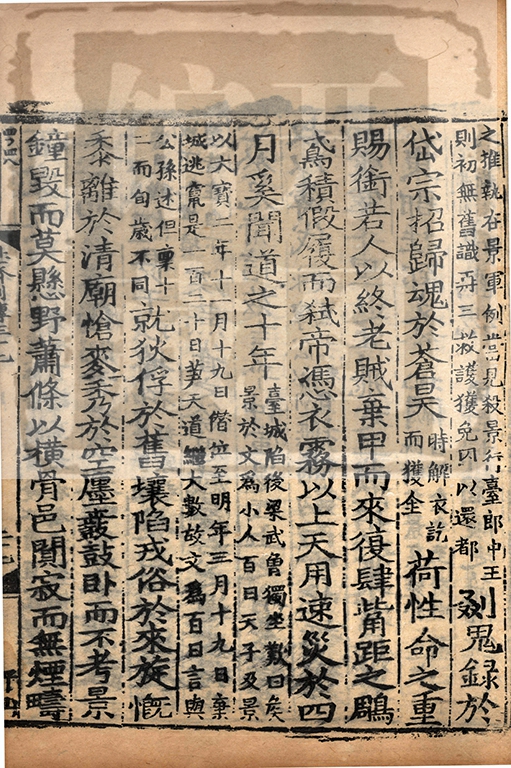 之推執在景軍例當見殺景行臺郎中王
則初無舊識再三救護獲免囚以還都
剟鬼録於
岱宗招歸魂於蒼昊
時解衣訖
而獲全
荷性命之重
賜銜若人以終老賊棄甲而來復肆觜距之鵰
鳶積假履而弒帝憑衣霧以上天用速災於四
月奚聞道之十年
臺城陷後梁武曾獨坐歎曰矦
景於文爲小人百日天子及景
以大寶二年十一月十九日僭位至明年三月十九日棄
城逃竄是一百二十日天道大數故文爲百日言與
公孫述但稟十
二而旬歲不同
就狄俘於舊壤陷戎俗於來旋慨
黍離於清廟愴麥秀於空廛鼖鼓卧而不考景
鐘毀而莫懸野蕭條以橫骨邑闃寂而無煙疇